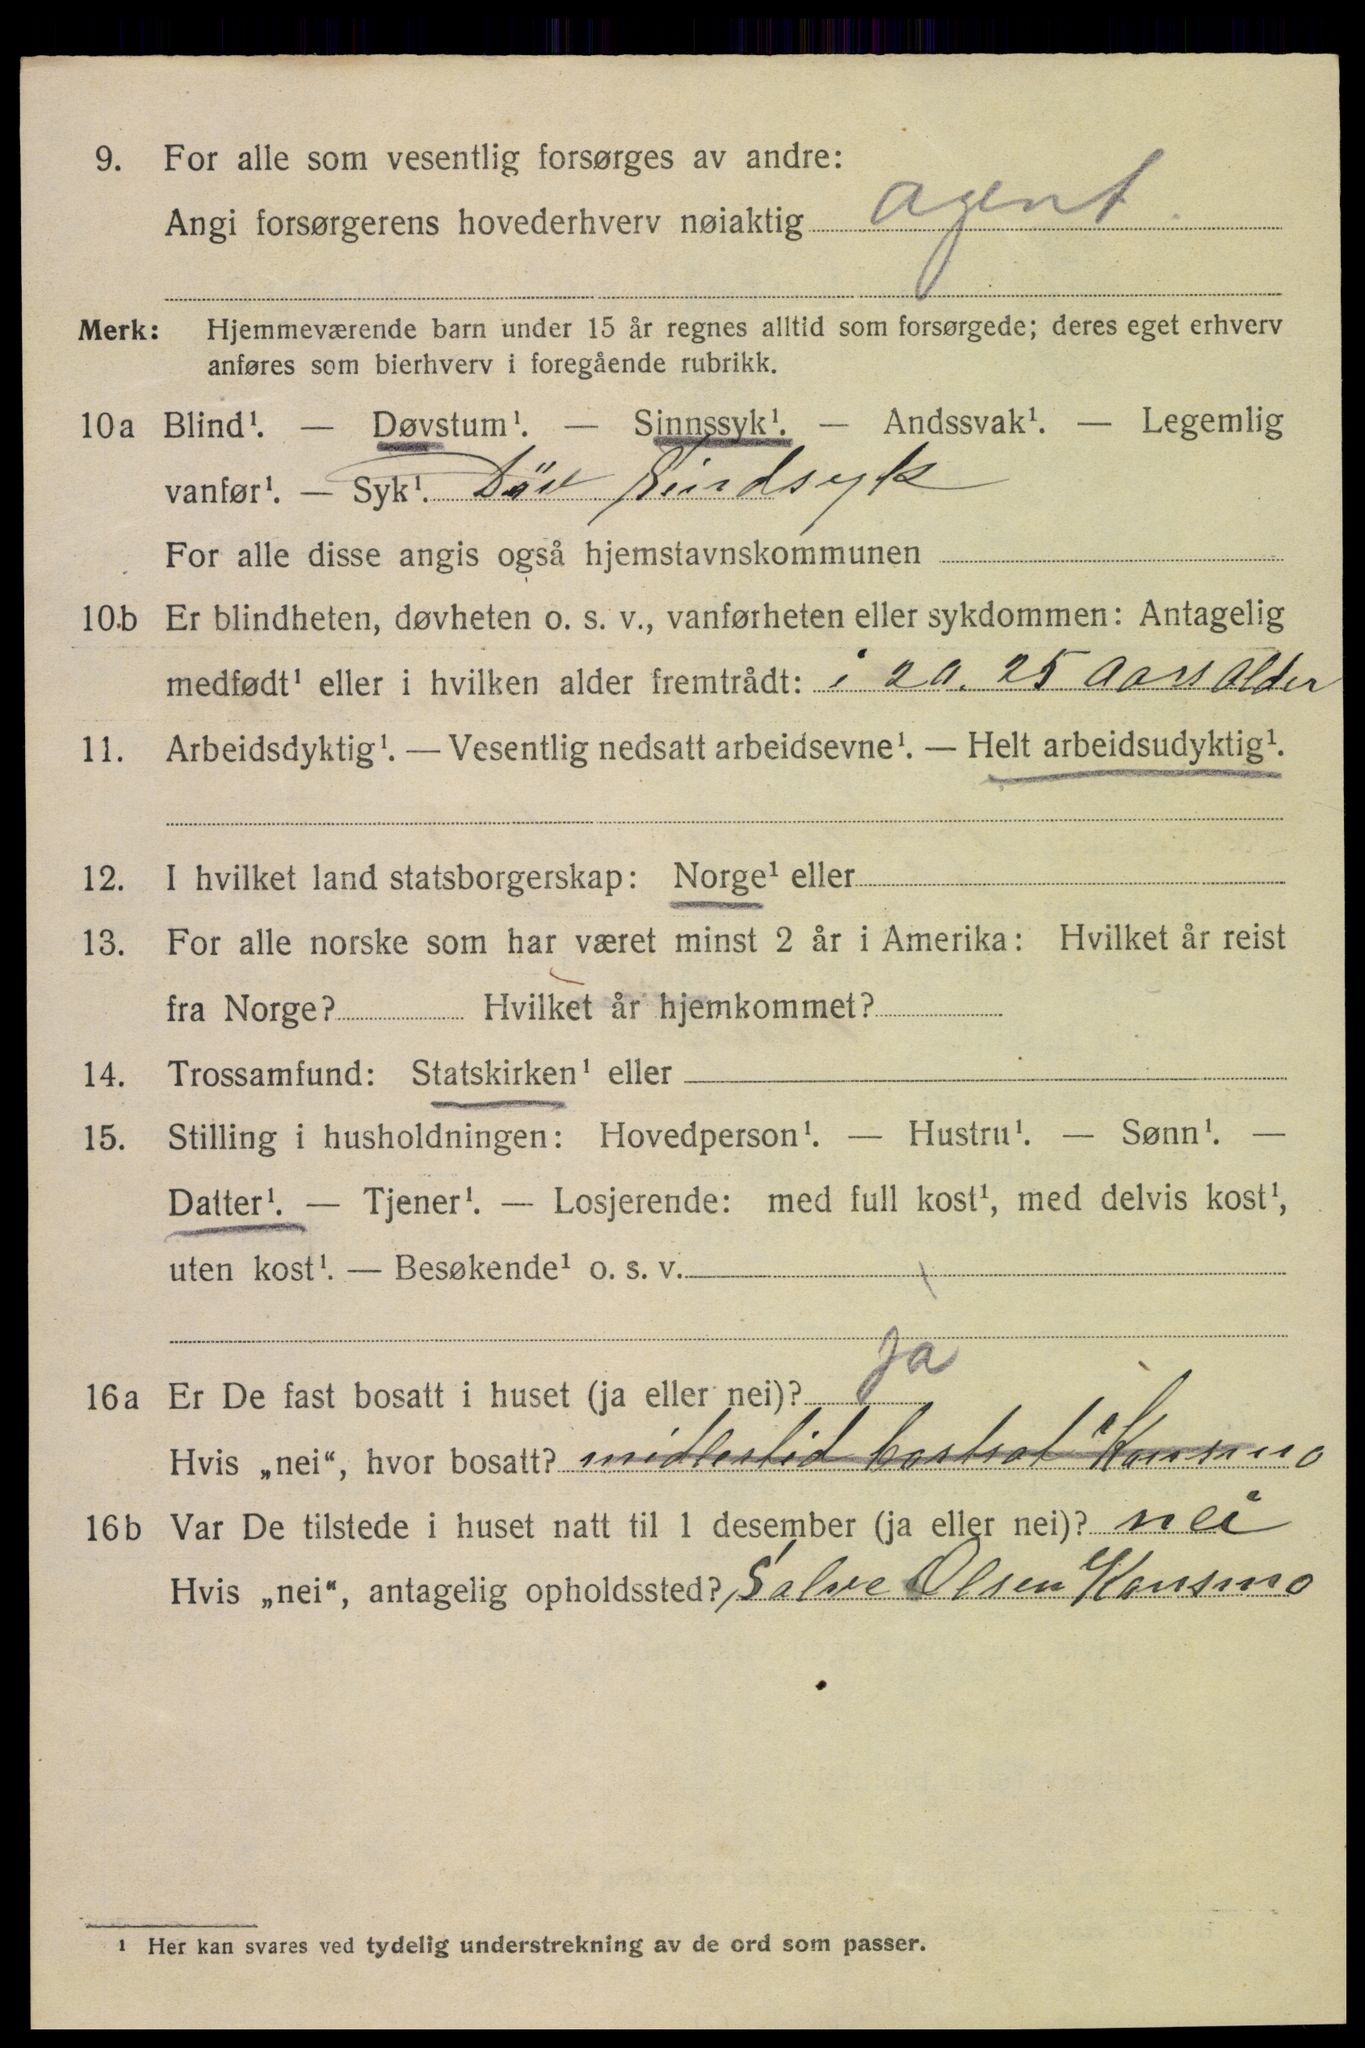 9. For alle som vesentlig forsørges av andre:
Angi forsørgerens hovederhverv nøiaktig agent
Merk: Hjemmeværende barn under 15 år regnes alltid som forsørgede; deres eget erhverv
anføres som bierhverv i foregående rubrikk.
10a Blind¹. — Døvstum¹. — Sinnssyk¹. — Andssvak¹. — Legemlig
vanfør¹. — Syk¹. Döv Sindsyk
For alle disse angis også hjemstavnskommunen
10b Er blindheten, døvheten o. s. v., vanførheten eller sykdommen: Antagelig
medfødt¹ eller i hvilken alder fremtrådt: i 20. 25 Aars Alder
11. Arbeidsdyktig¹. — Vesentlig nedsatt arbeidsevne¹. — Helt arbeidsudyktig¹.
12. I hvilket land statsborgerskap: Norge¹ eller
13. For alle norske som har været minst 2 år i Amerika: Hvilket år reist
fra Norge? Hvilket år hjemkommet?
14. Trossamfund: Statskirken¹ eller
15. Stilling i husholdningen: Hovedperson¹. — Hustru¹. — Sønn¹. —
Datter¹. — Tjener¹. — Losjerende: med full kost¹, med delvis kost¹,
uten kost¹. — Besøkende¹ o. s. v.
16a Er De fast bosatt i huset (ja eller nei)? Ja
Hvis „nei“, hvor bosatt? midlertid bortsat i Konsmo
16b Var De tilstede i huset natt til 1 desember (ja eller nei)? nei
Hvis „nei“, antagelig opholdssted? Salve Olsen Konsmo
¹ Her kan svares ved tydelig understrekning av de ord som passer.